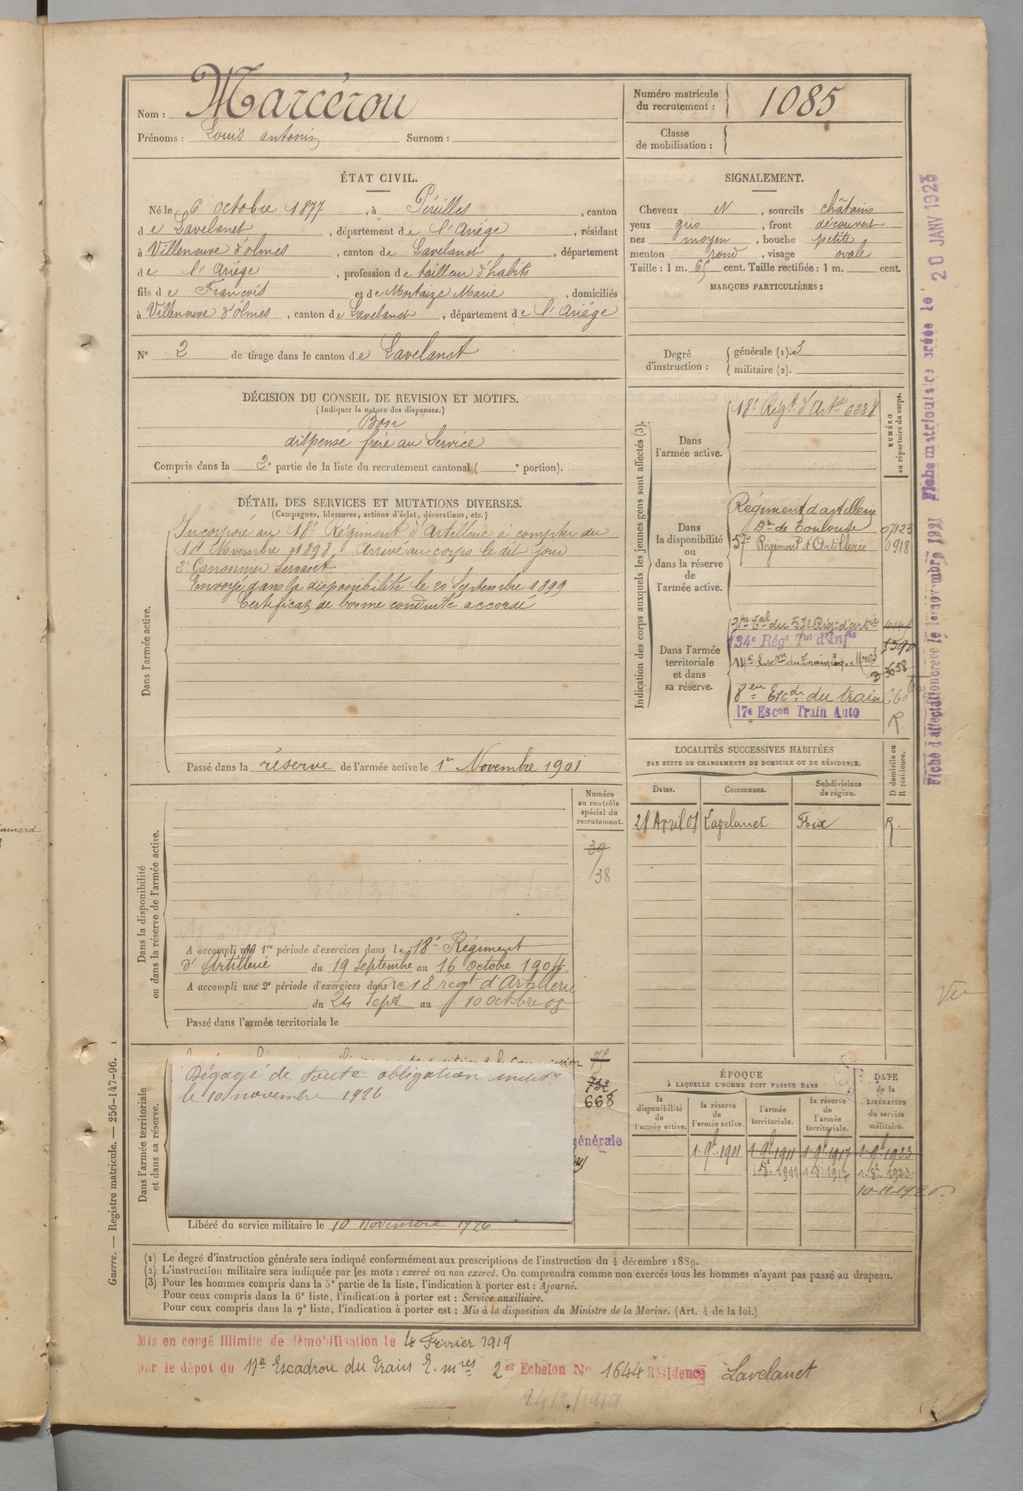 Nom : Marcérou
Prénoms : Louis antonin Surnom :
Numéro matricule du recrutement : 1085
Classe de mobilisation :
ÉTAT CIVIL.
Né le 6 octobre 1877, à Péreilles, canton
de Lavelanet, département de l'Ariége, résidant
à Villeneuve d'olmes, canton de Lavelanet, département
de l'Ariége, profession de tailleur d'habits
fils de François et de Mortaize Marie, domiciliés
à Villeneuve d'olmes, canton de Lavelanet, département de l'Ariége
N° 2 de tirage dans le canton de Lavelanet
SIGNALEMENT.
Cheveux N, sourcils châtains
yeux gris, front découvert
nez moyen, bouche petite
menton rond, visage ovale
Taille : 1 m. 65 cent. Taille rectifiée : 1 m. cent.
MARQUES PARTICULIÈRES :
Degré d'instruction : générale (1). 3
militaire (2).
DÉCISION DU CONSEIL DE REVISION ET MOTIFS.
(Indiquer la nature des dispenses.)
Bon
dispensé frère au Service
Compris dans la 2e partie de la liste du recrutement cantonal ( e portion).
DÉTAIL DES SERVICES ET MUTATIONS DIVERSES.
(Campagnes, blessures, actions d'éclat, décorations, etc.)
Dans l'armée active.
Incorporé au 18e Régiment d'Artillerie à compter du
14 Novembre 1898, Arrivé au corps le dit jour
2e Canonnier servant
Envoyé dans la disponibilité le 20 Septembre 1899
Certificat de bonne conduite accordé
Passé dans la réserve de l'armée active le 1er Novembre 1901
Indication des corps auxquels les jeunes gens sont affectés (3).
NUMÉRO au répertoire du corps.
Dans l'armée active.
18e Régt d'Artie 6238
Dans la disponibilité ou dans la réserve de l'armée active.
Régiment d'artillerie
Don de Toulouse 07123
57e Régiment d'Artillerie 0918
Dans l'armée territoriale et dans sa réserve.
134e Régt Tal d'Infie
8em Escd du train
17e Escon Train Auto R
LOCALITÉS SUCCESSIVES HABITÉES
PAR SUITE DE CHANGEMENTS DE DOMICILE OU DE RÉSIDENCE.
D domicile ou R résidence.
Dates. Communes. Subdivisions de région.
28 Avril 01 Lavelanet Foix R.
Numéro au contrôle spécial du recrutement.
39
38
Dans la disponibilité ou dans la réserve de l'armée active.
A accompli une 1re période d'exercices dans le 18e Régiment
d'Artillerie du 19 septembre au 16 octobre 1904
A accompli une 2e période d'exercices dans le 18 regt d'Artillerie
du 24 Sept au 10 octobre 08
Passé dans l'armée territoriale le
Dans l'armée territoriale et dans sa réserve.
Dégagé de toute obligation milite
le 10 novembre 1926
668
générale
Libéré du service militaire le 10 novembre 1926
ÉPOQUE
À LAQUELLE L'HOMME DOIT PASSER DANS
la disponibilité de l'armée active. la réserve de l'armée active. l'armée territoriale. la réserve de l'armée territoriale.
DATE de la LIBÉRATION du service militaire.
1 9bre 1901 1 9bre 1911 1 9bre 1917 1 9bre 1923
10-11-1926
(1) Le degré d'instruction générale sera indiqué conformément aux prescriptions de l'instruction du 4 décembre 1889.
(2) L'instruction militaire sera indiquée par les mots : exercé ou non exercé. On comprendra comme non exercés tous les hommes n'ayant pas passé au drapeau.
(3) Pour les hommes compris dans la 5e partie de la liste, l'indication à porter est : Ajourné.
Pour ceux compris dans la 6e liste, l'indication à porter est : Service auxiliaire.
Pour ceux compris dans la 7e liste, l'indication à porter est : Mis à la disposition du Ministre de la Marine. (Art. 4 de la loi.)
Mis en congé illimité de démobilisation le 4 Fevrier 1919
par le dépôt du 17e Escadron du Train E. mres 2e Echelon N° 1644 Résidence Lavelanet
24/2/1919
Guerre. — Registre matricule. — 256-147-96.
Fiche d'affectation créée le 1e novembre 1921 Fiche matriculaire créée le 20 JANV 1923